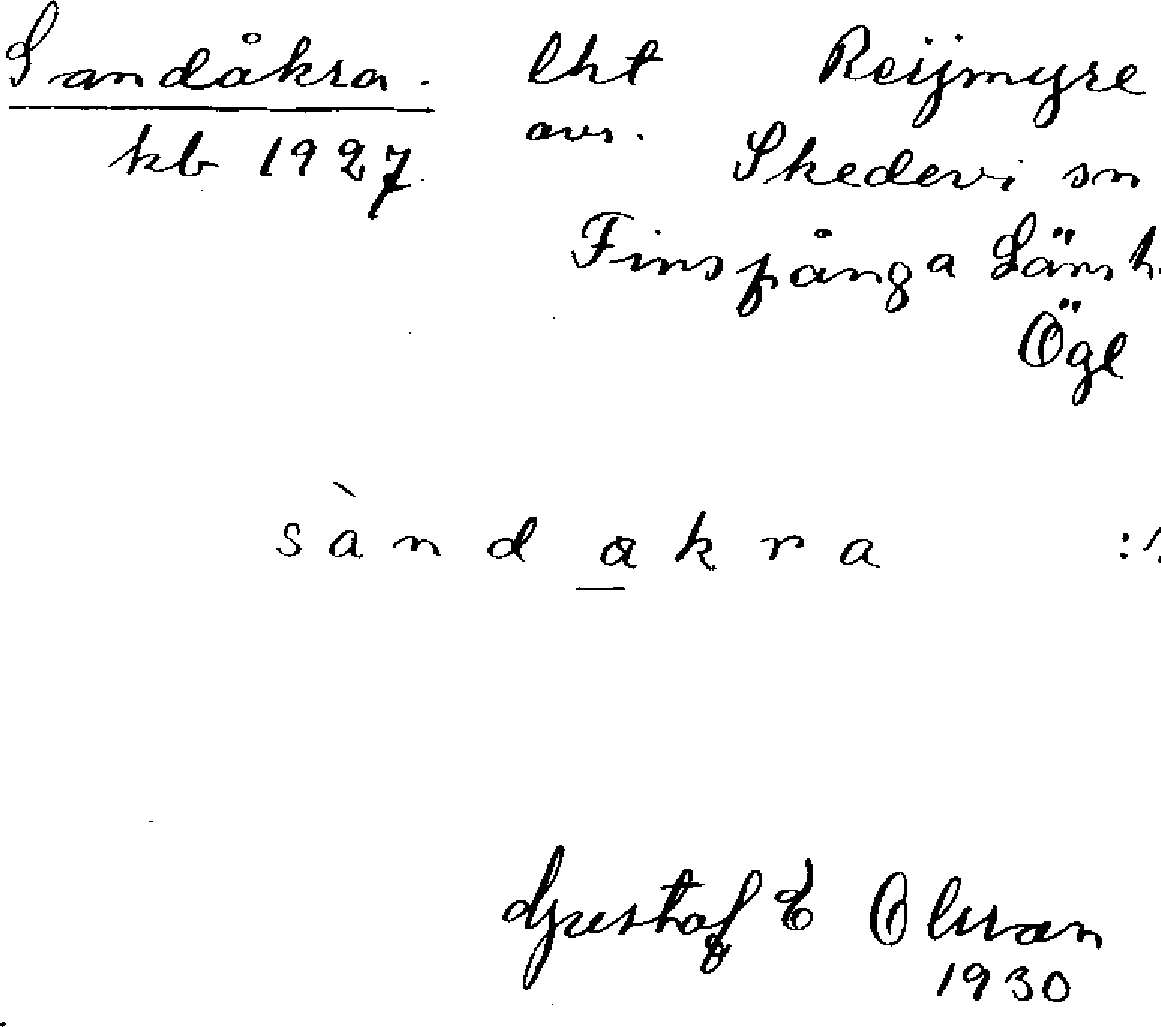 Sandåkra. lht Reijmyre
kb 1927. avs. Skedevi sn
Finspånga Länsh.
Ögl
sàndakra
Gustaf E Olsson
1930